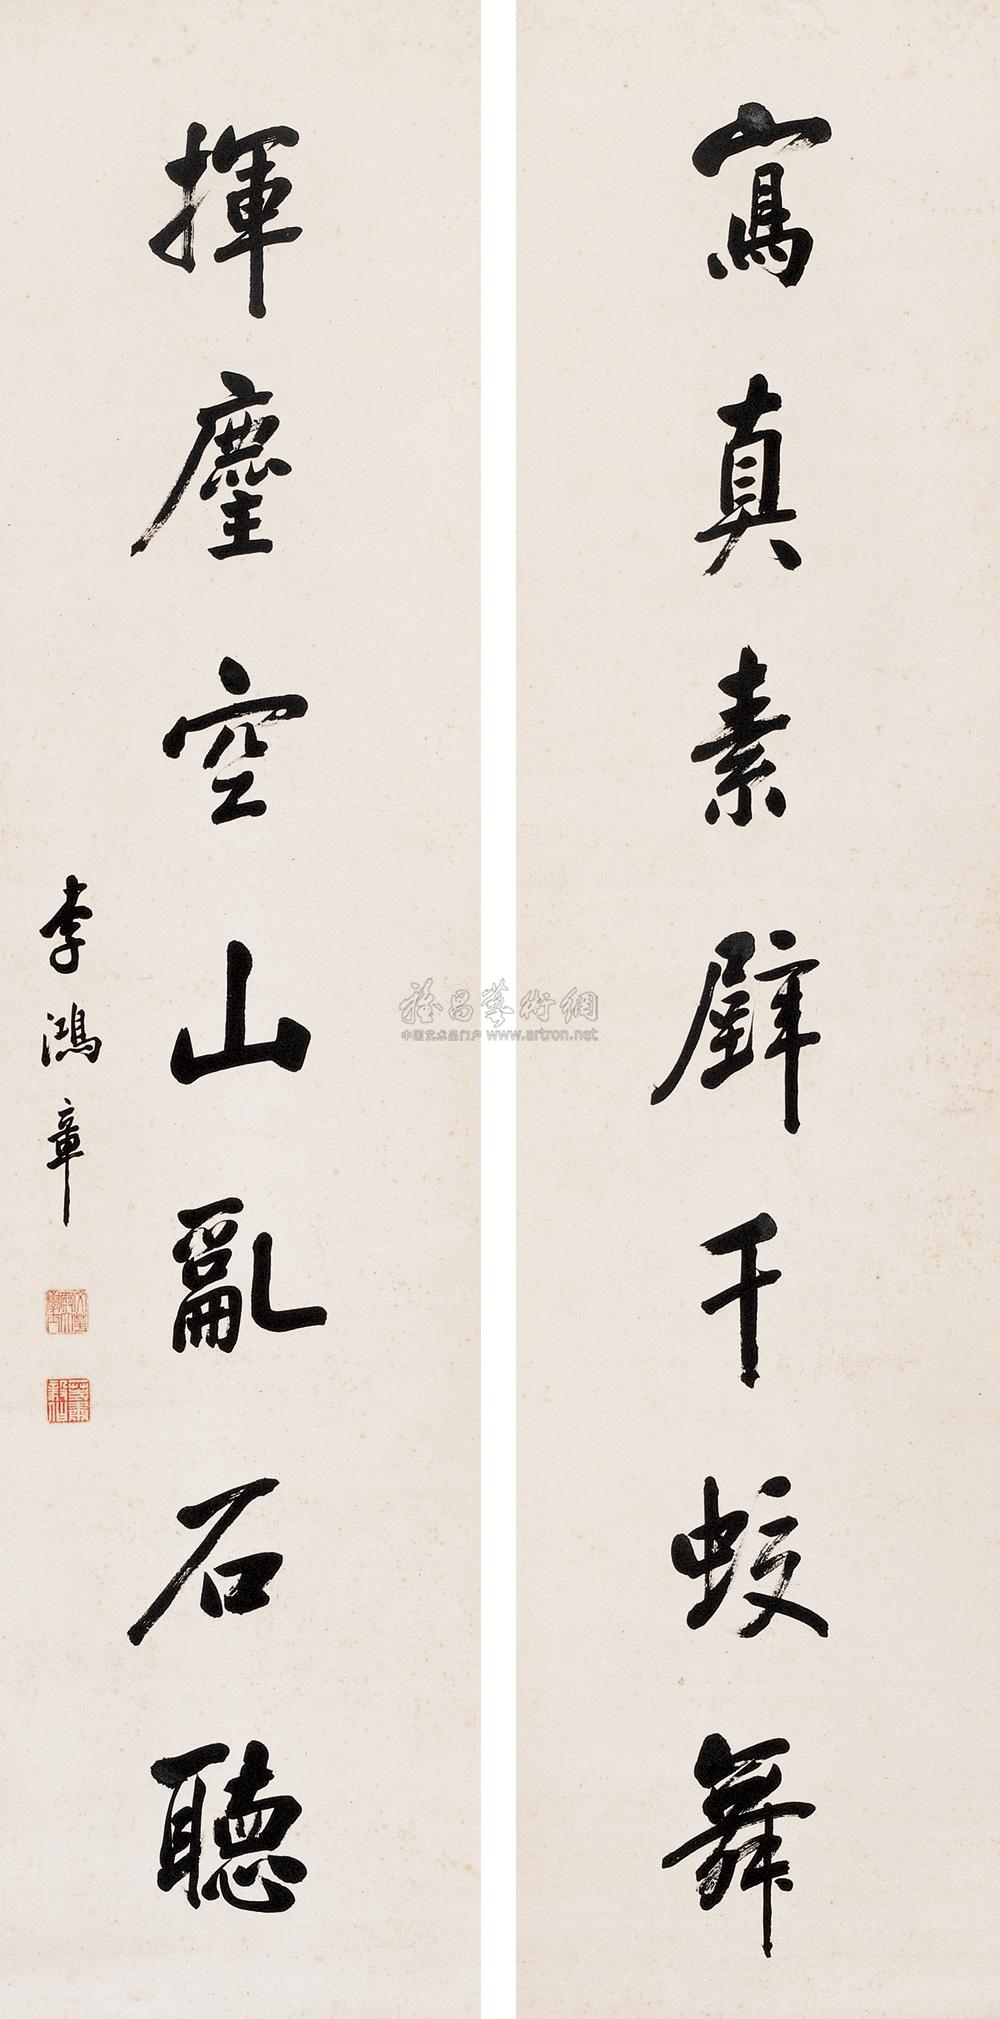 寫真素壁千蛟舞
揮麈空山亂石聽
李鴻章
雅昌藝術網
中国艺术品门户 www.artron.net